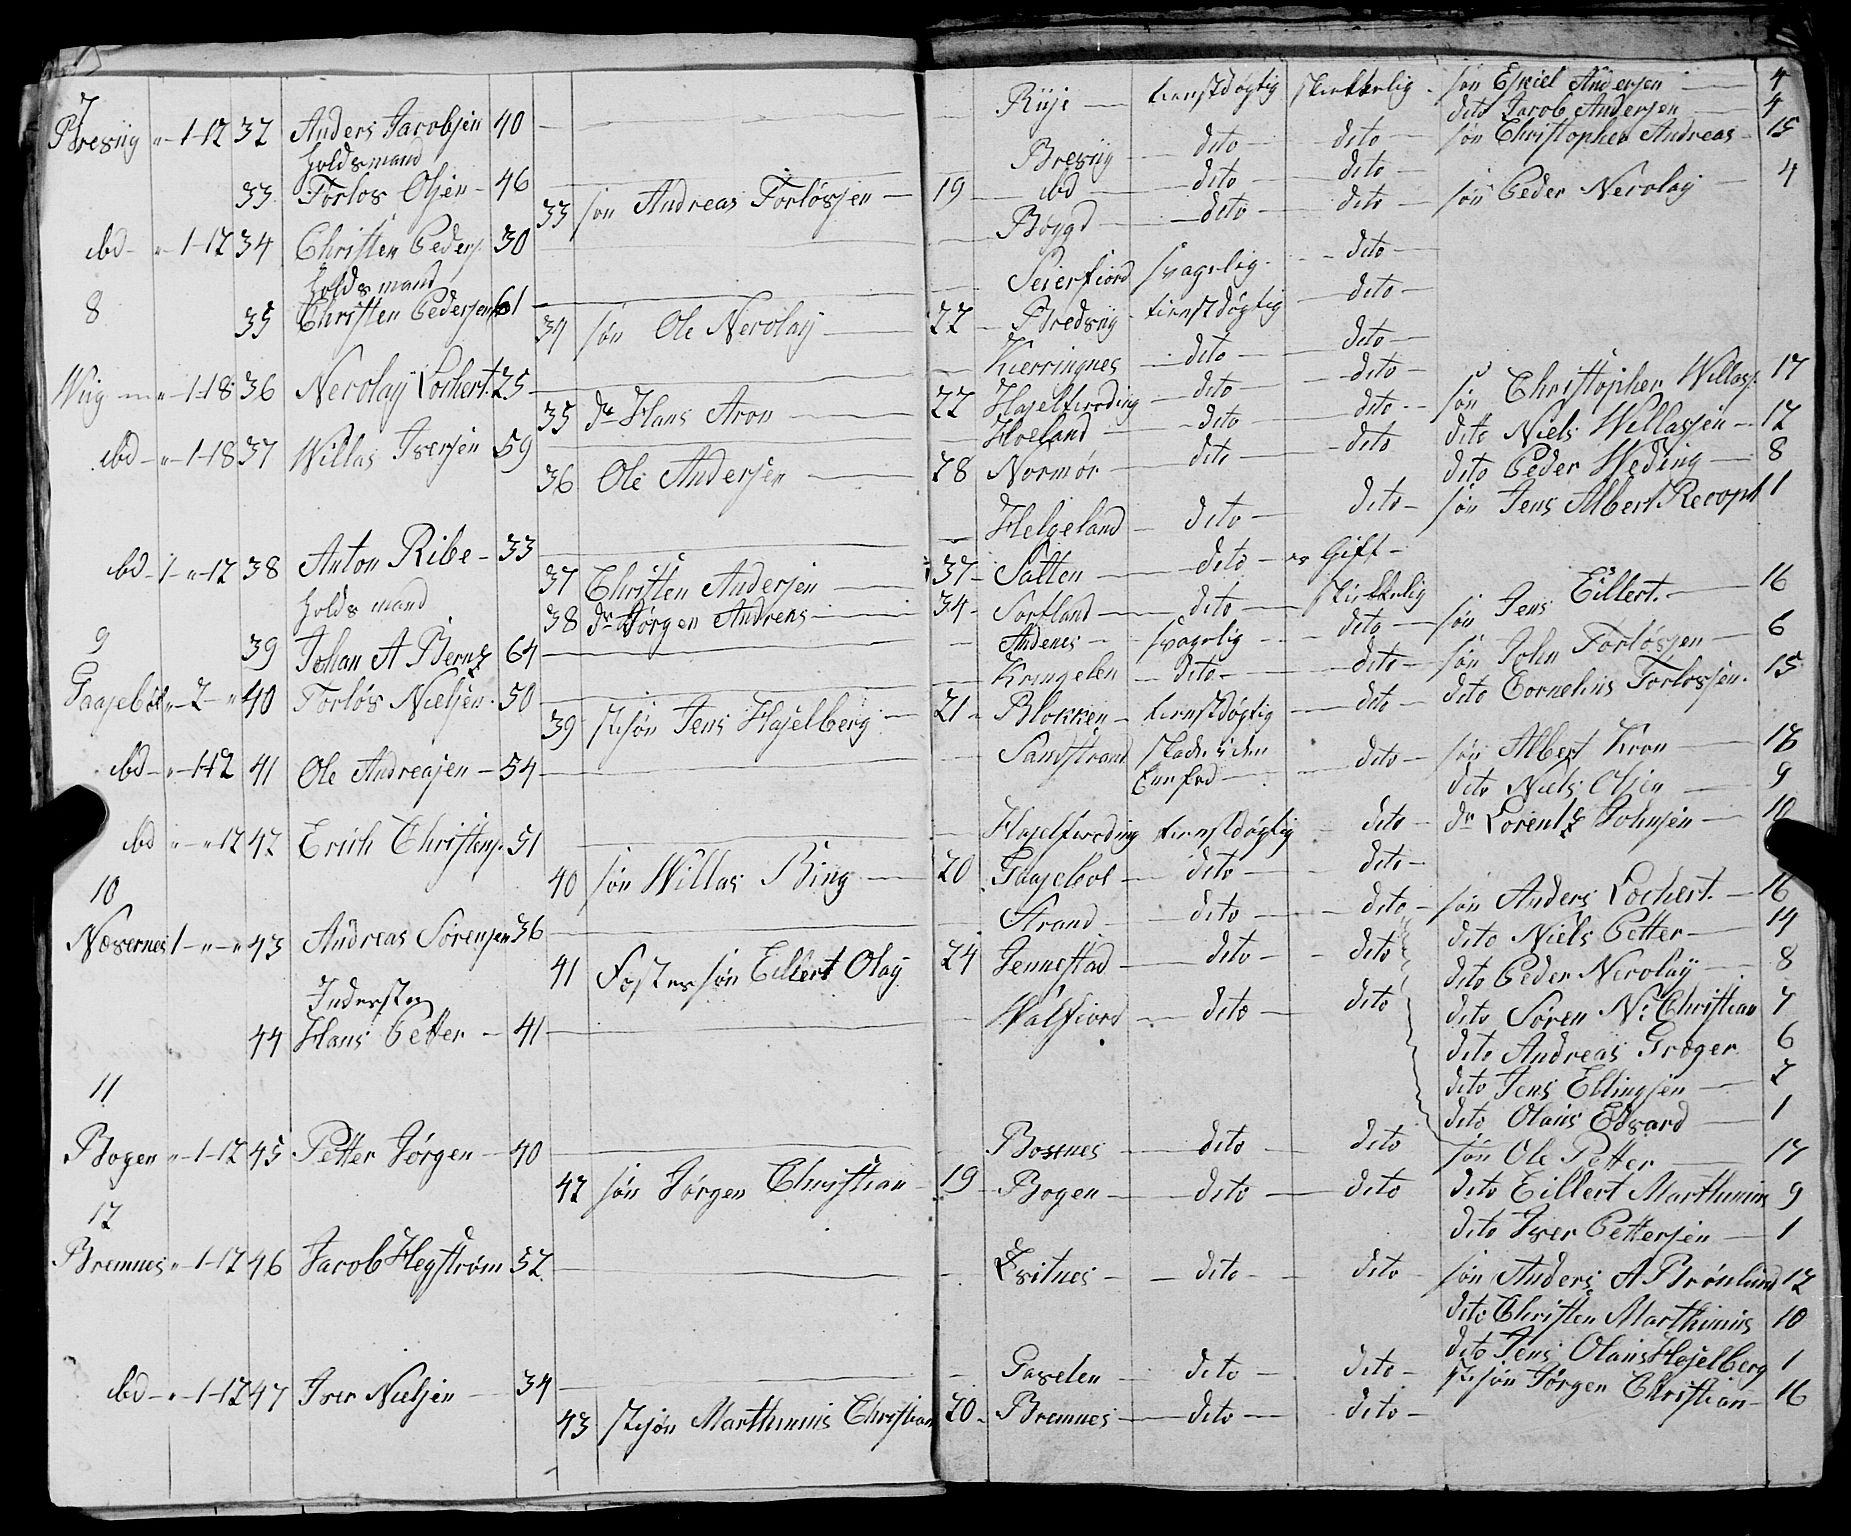 7
Bresviig " 1-12 32 Anders Jacobsen 40 — Riise — tienstdøgtig skikkelig - søn Esaiel Andersen — 4
dito Jacob Andersen — 4
holdsmand
33 Torlos Olsen - 46 — Bresviig — dito — dito — søn Christopher Andreas - 15
33 søn Andreas Torløssen — 19 — ibd — dito — dito —
ibd - " 1-12 34 Christen Peders. 30 — Boygd — dito — dito — søn Peder Nerolay — 4
holdsmand
8
35 Christen Pedersen 61 — Seierfiord svagelig - dito —
34 søn Ole Nerolay — 22 — Bredsviig - tienstdøgtig — dito —
Wiig — " 1-18 36 Nerolay Lochert. 25 — Kierringnes — dito — dito —
35 dn Hans Aron — 22 Haselfierding — dito — dito —
ibd - " 1-18 37 Willas Iversen 59 — Hoeland — dito — dito — søn Christopher Willass. 17
dito Niels Willassen — 12
dito Peder Weding — 8
36 Ole Andersen — 28 Normør — dito — dito
ibd - 1 - " - 12 38 Anton Ribe — 33 — Helgeland — dito — dito — søn Jens Albert 1
37 Christen Andersen — 37 - Salten — dito — Gift —
38 dn Jørgen Andreas — 34 - Sorfland — dito — skikkelig
holdsmand
9
39 Johan A Berntz 64 — Andenes — svagelig — dito — søn Jens Eillert. — 16
Gaasebøl " - 2 - " 40 Torløs Nielsen. 50 — Kringelen — dito — dito — søn John Torløssen — 6
dito Cornelius Torlossen. 15
39 stisøn Jens Haselberg — 21 - Blokken — tienstdøgtig — dito —
ibd - " - 1-12 41 Ole Andreasen — 54 — Sandstrand skade i den
— dito — søn Albert Kron — 16
dito Niels Olsen — 9
ibd " - " 12 42 Erich Christens. 51 — Haselfierding tienstdøgtig — dito — dn Lorentz Johnsen — 10
40 søn Willas Ring — 20 Gaasebøl — dito — dito —
10
Næsernes 1 - " - " 43 Andreas Sørensen 36 — Strand — dito — dito — søn Anders Lochert. — 16
dito Niels Petter — 14
41 Fostersøn Eillert Olay 24 Jennestad — dito — dito
dito Peder Nerolay — 8
Inderster
44 Hans Petter — 41 — Walfiord — dito — dito
dito Søren N: Christian 7
dito Andreas Grøger 6
dito Jens Ellingsen — 2
dito Olaus Edvard — 1
11
Bogen " 1-12 45 Petter Jørgen — 40 — Bosnes — dito — dito søn Ole Petter — 17
42 søn Jørgen Christian — 19 — Bogen — dito — dito dito Eillert Marthinius 9
dito Iver Pettersen — 1
12
Bremnes " 1-12 46 Jacob Hegstrøm 52 — Kvitnes — dito — dito — søn Anders A Brønlund 12
dito Christen Marthinius 10
dito Jens Olaus Haselberg 1
ibd - " 1-12 47 Iver Nielsen — 34 — Gavelen — dito — dito — stisøn Jørgen Christian — 16
43 stisøn Marthinius Christian 20 — Bremnes — dito — dito —